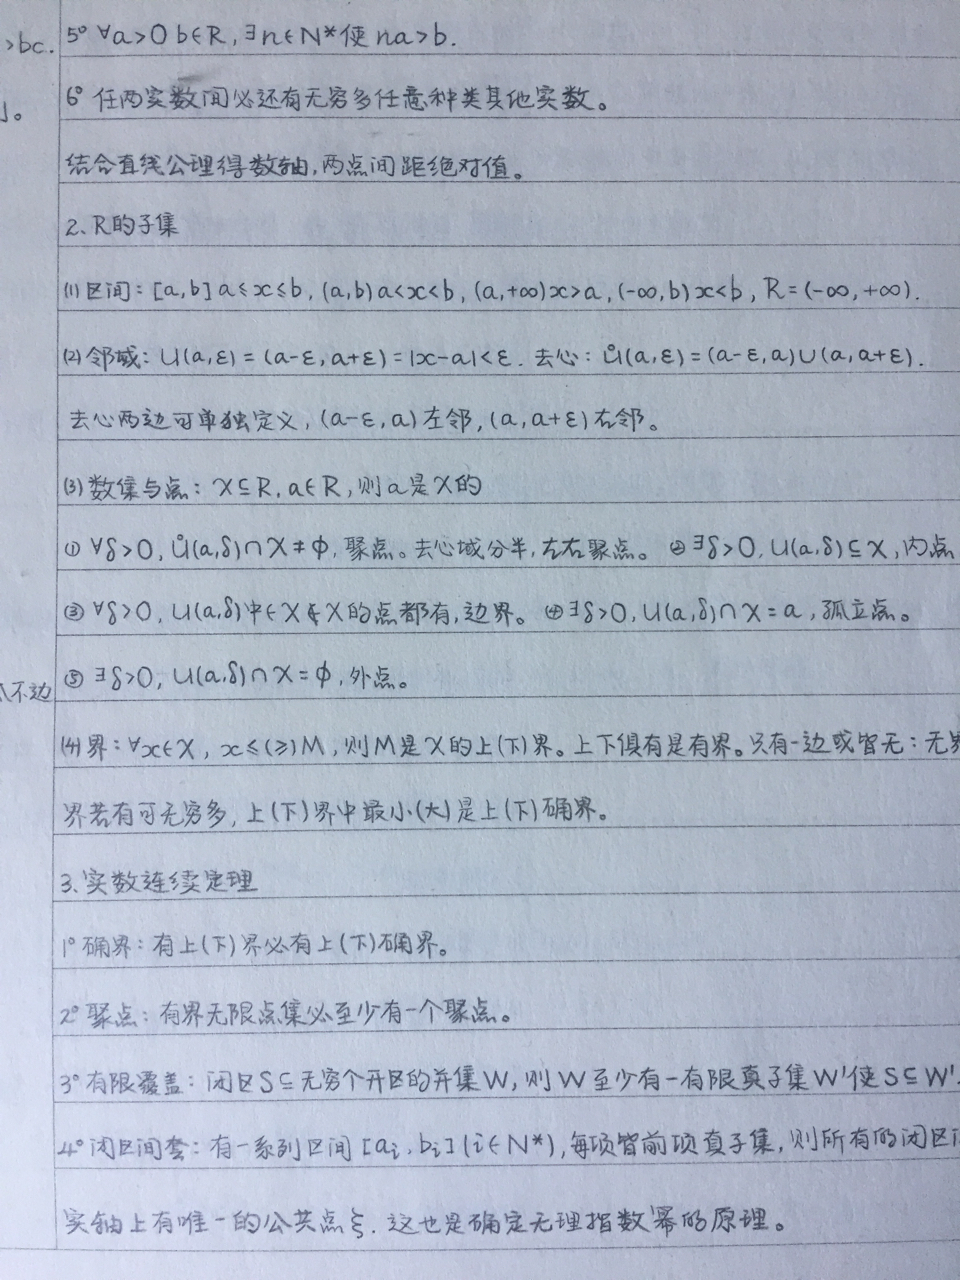 >bc.
5° ∀a>0 b∈R, ∃n∈N*使 na>b.
6° 任两实数间必还有无穷多任意种类其他实数。
结合直线公理得数轴,两点间距绝对值。
2、R的子集
(1) 区间: [a,b] a≤x≤b, (a,b) a<x<b, (a,+∞) x>a, (-∞,b) x<b, R=(-∞,+∞).
(2) 邻域: U(a,ε) = (a-ε, a+ε) = |x-a|<ε. 去心: Ů(a,ε) = (a-ε,a)∪(a,a+ε).
去心两边可单独定义, (a-ε,a)左邻, (a,a+ε)右邻。
(3) 数集与点: X⊆R, a∈R, 则a是X的
① ∀δ>0, Ů(a,δ)∩X≠φ, 聚点。去心域分半,左右聚点。 ② ∃δ>0, U(a,δ)⊆X, 内点
③ ∀δ>0, U(a,δ)中∈X∉X的点都有, 边界。 ④ ∃δ>0, U(a,δ)∩X=a, 孤立点。
不边
⑤ ∃δ>0, U(a,δ)∩X=φ, 外点。
(4) 界: ∀x∈X, x≤(≥)M, 则M是X的上(下)界。上下俱有是有界。只有一边或皆无: 无界
界若有可无穷多, 上(下)界中最小(大)是上(下)确界。
3、实数连续定理
1° 确界: 有上(下)界必有上(下)确界。
2° 聚点: 有界无限点集必至少有一个聚点。
3° 有限覆盖: 闭区S⊆无穷个开区的并集W, 则W至少有一有限真子集W'使S⊆W'.
4° 闭区间套: 有一系列区间[aᵢ,bᵢ](i∈N*), 每项皆前项真子集, 则所有的闭区间
实轴上有唯一的公共点ξ. 这也是确定无理指数幂的原理。